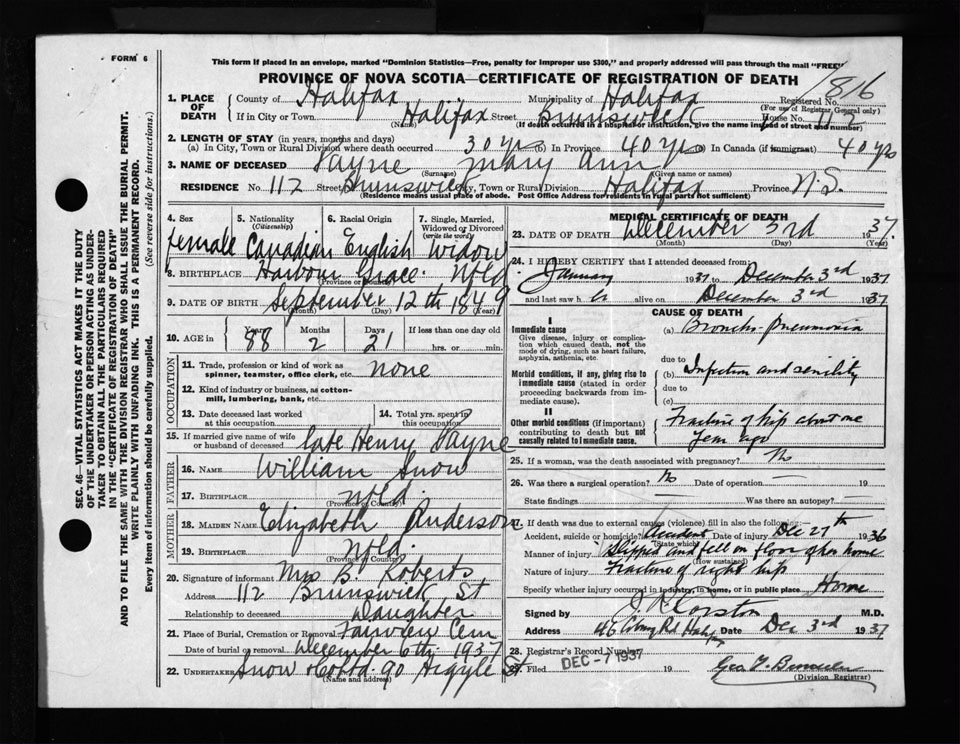 FORM 6
This form if placed in an envelope, marked "Dominion Statistics—Free, penalty for improper use $300," and properly addressed will pass through the mail "FREE"
PROVINCE OF NOVA SCOTIA—CERTIFICATE OF REGISTRATION OF DEATH
816
1. PLACE OF DEATH
County of Halifax Municipality of Halifax Registered No.
(For use of Registrar General only)
If in City or Town Halifax Street Brunswick House No. 112
(Name) (If death occurred in a hospital or institution, give the name instead of street and number)
2. LENGTH OF STAY (in years, months and days)
(a) In City, Town or Rural Division where death occurred 30 yrs (b) In Province 40 yrs (c) In Canada (if immigrant) 40 yrs
3. NAME OF DECEASED Payne Mary Ann
(Surname) (Given name or names)
RESIDENCE No. 112 Street Brunswick City, Town or Rural Division Halifax Province N.S.
(Residence means usual place of abode. Post Office Address for residents in rural parts not sufficient)
4. Sex
5. Nationality (Citizenship)
6. Racial Origin
7. Single, Married, Widowed or Divorced (write the word)
female Canadian English widow
8. BIRTHPLACE Harbour Grace Nfld
(Province or Country)
9. DATE OF BIRTH September 12th 1849
(Month) (Day) (Year)
10. AGE in
Years Months Days If less than one day old
88 2 21 hrs. or min.
OCCUPATION
11. Trade, profession or kind of work as spinner, teamster, office clerk, etc. none
12. Kind of industry or business, as cotton-mill, lumbering, bank, etc.
13. Date deceased last worked at this occupation
14. Total yrs. spent in this occupation
15. If married give name of wife or husband of deceased late Henry Payne
FATHER
16. NAME William Snow
17. BIRTHPLACE Nfld.
(Province or Country)
MOTHER
18. MAIDEN NAME Elizabeth Anderson
19. BIRTHPLACE Nfld.
(Province or Country)
20. Signature of informant Mrs B. Roberts
Address 112 Brunswick St
Relationship to deceased Daughter
21. Place of Burial, Cremation or Removal Fairview Cem
Date of burial or removal December 6th 1937
22. UNDERTAKER Snow & Co Ltd. 90 Argyle St
(Name and address)
MEDICAL CERTIFICATE OF DEATH
23. DATE OF DEATH December 3rd 1937.
(Month) (Day) (Year)
24. I HEREBY CERTIFY that I attended deceased from:
January 1937 to December 3rd 1937
and last saw h er alive on December 3rd 1937
CAUSE OF DEATH
I
Immediate cause
Give disease, injury or complication which caused death, not the mode of dying, such as heart failure, asphyxia, asthenia, etc.
(a) Broncho-pneumonia
due to
Morbid conditions, if any, giving rise to immediate cause (stated in order proceeding backwards from immediate cause).
(b) Infection and senility
due to
(c)
II
Other morbid conditions (if important) contributing to death but not causally related to immediate cause.
Fracture of hip about one
year ago
25. If a woman, was the death associated with pregnancy? No
26. Was there a surgical operation? No Date of operation — 19
State findings — Was there an autopsy? —
27. If death was due to external causes (violence) fill in also the following:—
Accident, suicide or homicide? Accident Date of injury Dec 27th 1936
(State which)
Manner of injury Slipped and fell on floor of her home
(How sustained)
Nature of injury Fracture of right hip
Specify whether injury occurred in industry, in home, or in public place Home
Signed by J. R. Corston M.D.
Address 46 Coburg Rd Halifax Date Dec 3rd 1937
28. Registrar's Record Number
29. Filed DEC -7 1937 19
(Division Registrar)
SEC. 46—VITAL STATISTICS ACT MAKES IT THE DUTY
OF THE UNDERTAKER OR PERSON ACTING AS UNDER-
TAKER TO OBTAIN ALL THE PARTICULARS REQUIRED
IN THE "CERTIFICATE OF REGISTRATION OF DEATH"
AND TO FILE THE SAME WITH THE DIVISION REGISTRAR WHO SHALL ISSUE THE BURIAL PERMIT.
WRITE PLAINLY WITH UNFADING INK. THIS IS A PERMANENT RECORD.
Every item of information should be carefully supplied. (See reverse side for instructions.)